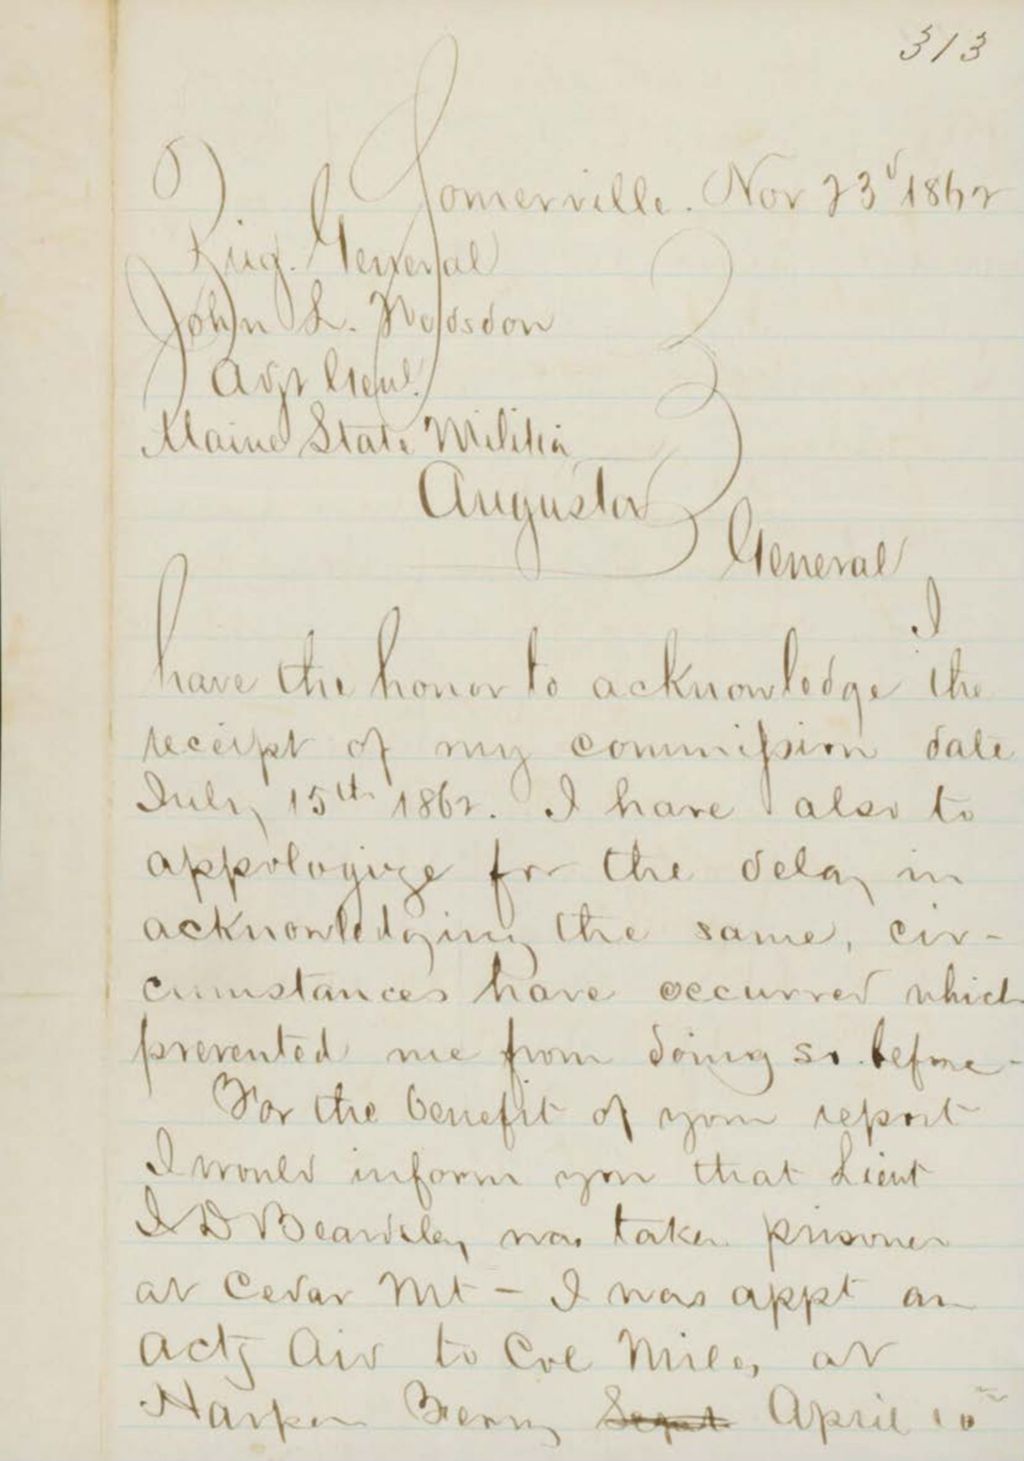 313
Somerville. Nov 23d 1862
Brig. General
John L. Hodsdon
Adjt Genl.
Maine State Militia
Augusta
General
I
have the honor to acknowledge the
receipt of my commission date
July 15th 1862. I have also to
appologize for the delay in
acknowledging the same, cir-
cumstances have occurred which
prevented me from doing so before-
For the benefit of your report
I would inform you that Lieut
J D Beardsley was taken prisoner
at Cedar Mt - I was appt an
Actg Aid to Col Miles at
Harper Ferry Sept April 10th